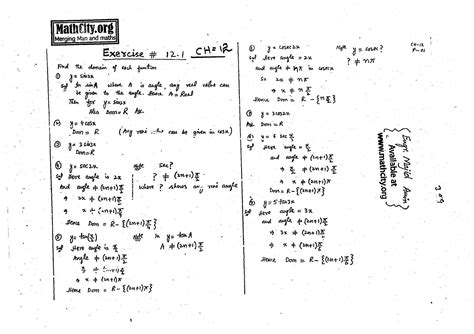 MathCity.org
Merging Man and maths
Exercise # 12.1 CH=12
Find the domain of each function
① y = sin2x
Sol In sinA where A is angle, any real value can
be given to the angle. Hence A = Real
Then for y = sin2x
Also Dom = R Ans.
② y = 4cosx
Dom = R (Any real can be given in cosx)
③ y = 3sin2x
Dom = R
④ y = sec2x Note sec?
Sol Here angle is 2x ? ≠ (2n+1)π/2
And angle ≠ (2n+1)π/2 where ? shows any real angle
⇒ 2x ≠ (2n+1)π/2
⇒ x ≠
Hence Dom = R - {(2n+1)π/4}
⑤ y = tan(x/2) Note in y = tanA
Sol Here angle is x/2 A ≠ (2n+1)π/2
Angle ≠ (2n+1)π/2
⇒ x ≠ (2n+1)π
Hence Dom = R - {(2n+1)π}
⑥ y = cosec2x Note y = cosec?
Sol Here angle = 2x ? ≠ nπ
and angle ≠ nπ in cosecx
So 2x ≠ nπ
⇒ x ≠ nπ/2
Hence Dom = R - {nπ/2}
⑦ y = 3cos2x
Ans Dom = R
y = 6 sec x/2
Sol Here angle = x/2
and angle ≠ (2n+1)π/2
⇒ x/2 ≠ (2n+1)π/2
⇒ x ≠ (2n+1)π
Dom = R - {(2n+1)π}
y = 5tan3x
Sol Here angle = 3x
and angle ≠ (2n+1)π/2
⇒ 3x ≠ (2n+1)π/2
⇒ x ≠ (2n+1)π/6
Hence Dom = R - {(2n+1)π/6}
CH-12
P-01
Engr. Majid Amin
Available at
www.mathcity.org